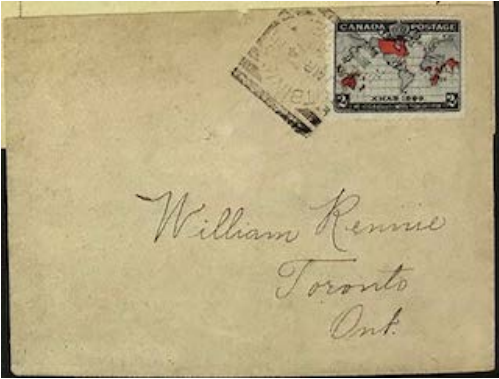 CANADA POSTAGE
2 XMAS 1898 2
William Rennie
Toronto
Ont.